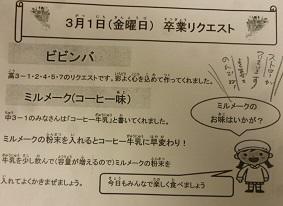 3月1日(金曜日) 卒業リクエスト
ビビンバ
高3-1・2・4・5・7のリクエストです。彩よく心を込めて作ってくれました。
ミルメーク(コーヒー味)
中3-1のみなさんは「コーヒー牛乳」と書いてくれました。
ミルメークの粉末を入れるとコーヒー牛乳に早変わり!
牛乳を少し飲んで(容量が増えるので)ミルメークの粉末を
入れてよくかきまぜましょう。
ミルメークの
お味はいかが?
今日もみんなで楽しく食べましょう